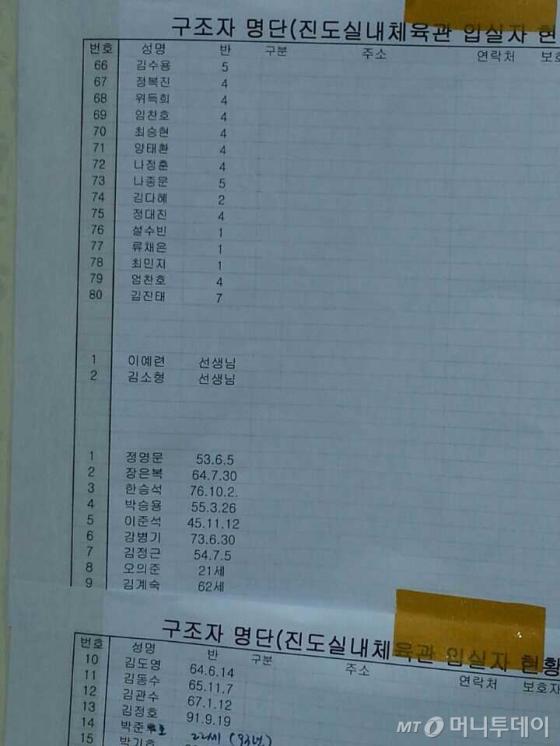 구조자 명단(진도실내체육관 입실자 현
번호 성명 반 구분 주소 연락처 보호
66 김수용 5
67 정복진 4
68 위득희 4
69 임찬호 4
70 최승현 4
71 양태환 4
72 나정훈 4
73 나종문 5
74 김다혜 2
75 정대진 4
76 설수빈 1
77 류채은 1
78 최민지 1
79 엄찬호 4
80 김진태 7
1 이예련 선생님
2 김소형 선생님
1 정명문 53.6.5
2 장은복 64.7.30
3 한승석 76.10.2.
4 박승용 55.3.26
5 이준석 45.11.12
6 강병기 73.6.30
7 김정근 54.7.5
8 오의준 21세
9 김계숙 62세
구조자 명단(진도실내체육관 입실자 현황
번호 성명 반 구분 주소 연락처 보호자
10 김도영 64.6.14
11 김동수 65.11.7
12 김관수 67.1.12
13 김정호 91.9.19
14 박준호 22세 (93년)
15 박기호
MT 머니투데이